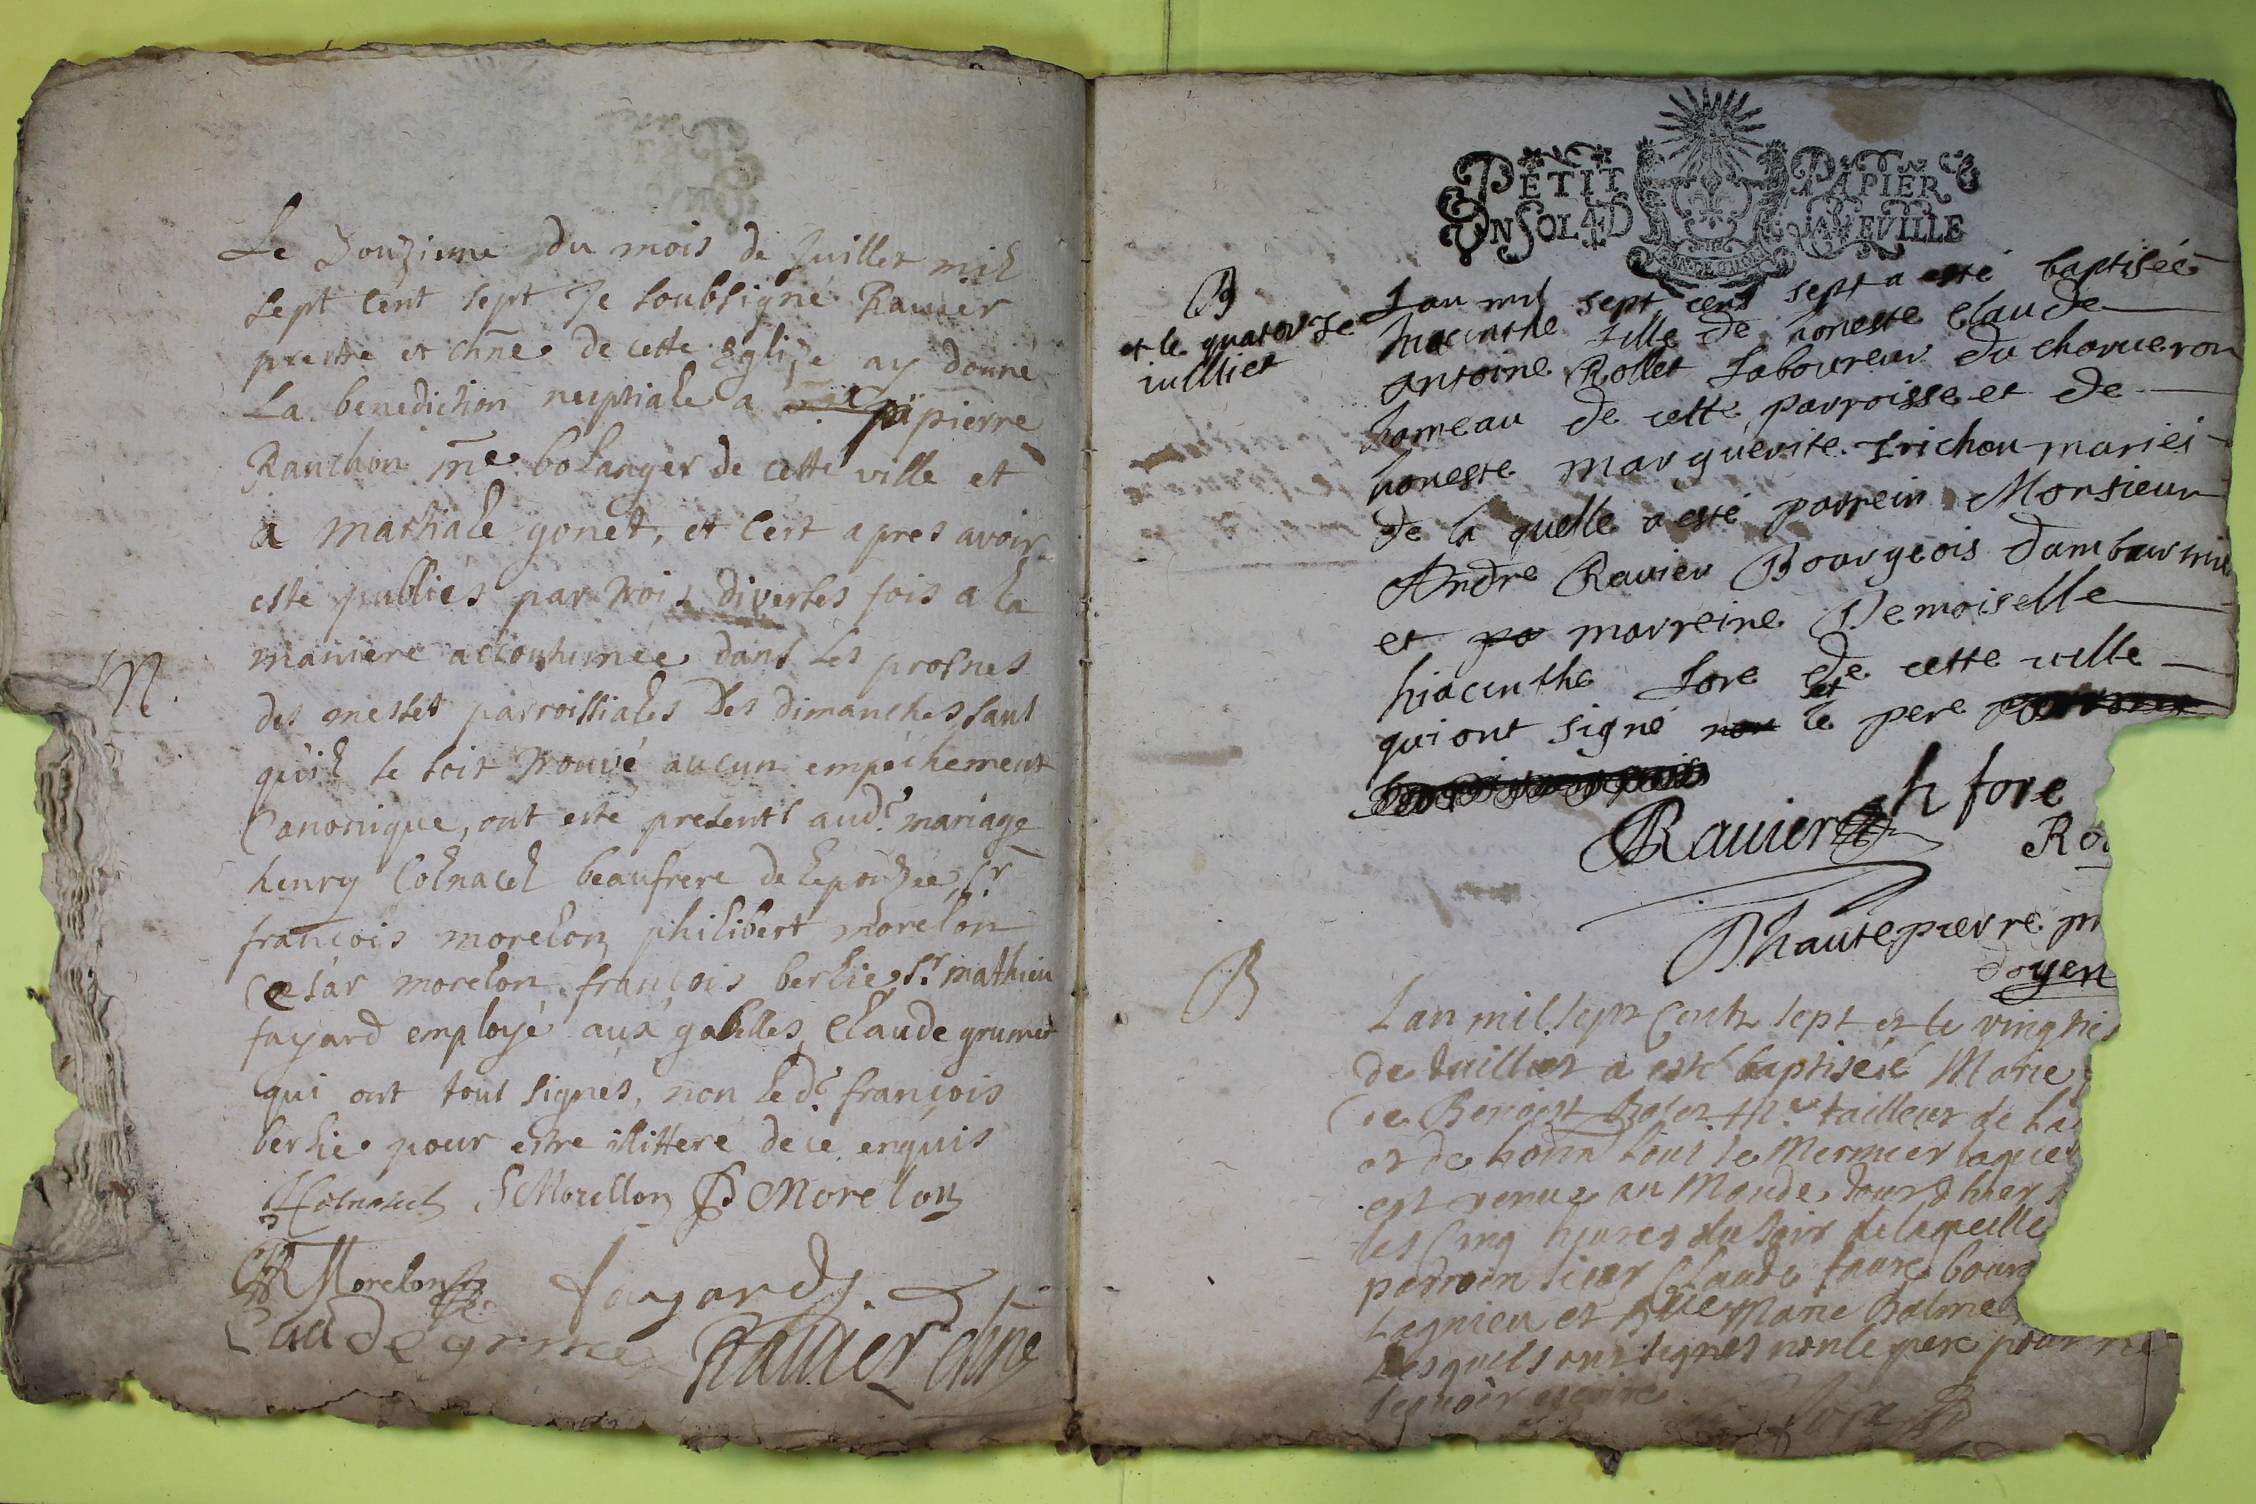 Le Douzieme du mois de Juillet mil
sept cent sept Je soubsigné Ravier
prestre et chne de cette Eglize ay donné
La benediction nuptiale a pierre
Ranchon me bolanger de cette ville et
a mathiale gonet, et cert apres avoir
esté publiés par trois diverses fois a la
maniere accoutumee dans les prosnes
M.
des messes parroissiales des dimanches sans
quil se soit trouvé aucun empéchement
Canonique, ont esté presents aud. mariage
henry Colnacel beaufrere de Lepouzee, Sr
françois morelon philibert morelon
Cesar morelon françois berlie Sr. mathieu
fayard employé aux gabelles, Claude grumet
qui ont tous signés, non led. françois
berlie pour estre illittere de ce enquis
Morellon P Morelon
Morelon fayard
Claude grumet Ravier chne
PETIT PAPIER
UN SOL 4 D LA VILLE
B
et le quatorze
iullliet
Lan mil sept cent sept a esté baptisée
hiacinthe fille de honeste Claude
Antoine Rollet Laboureur du charveron
hameau de cette parroisse et de
honeste marguerite trichon mariés
de la quelle a esté parrein Monsieur
Andre Ravier Bourgeois
et pa marreine Demoiselle
hiacinthe fore de cette ville
qui ont signé non et le pere
Ravier h fore
Ro
Dhautepierre pr
doyen
B
Lan mil sept Cents sept et le vingtie
de Juilliet a esté baptiséé Marie
de Benoist tailleur de ha
et de Mermier laquel
est venue au Monde Jour dhier
les Cinq heures du soir de laquelle
parrain sieur Claude faure bourg
Lagnieu et Marie Balme
Lesquels ont signes non le pere pour ne
scavoir escrire